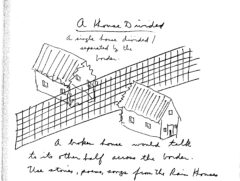 A House Divided
A single house divided/
separated by the
border.
A broken house would talk
to its other half across the border.
Use stories, poems, songs from the Rain Houses